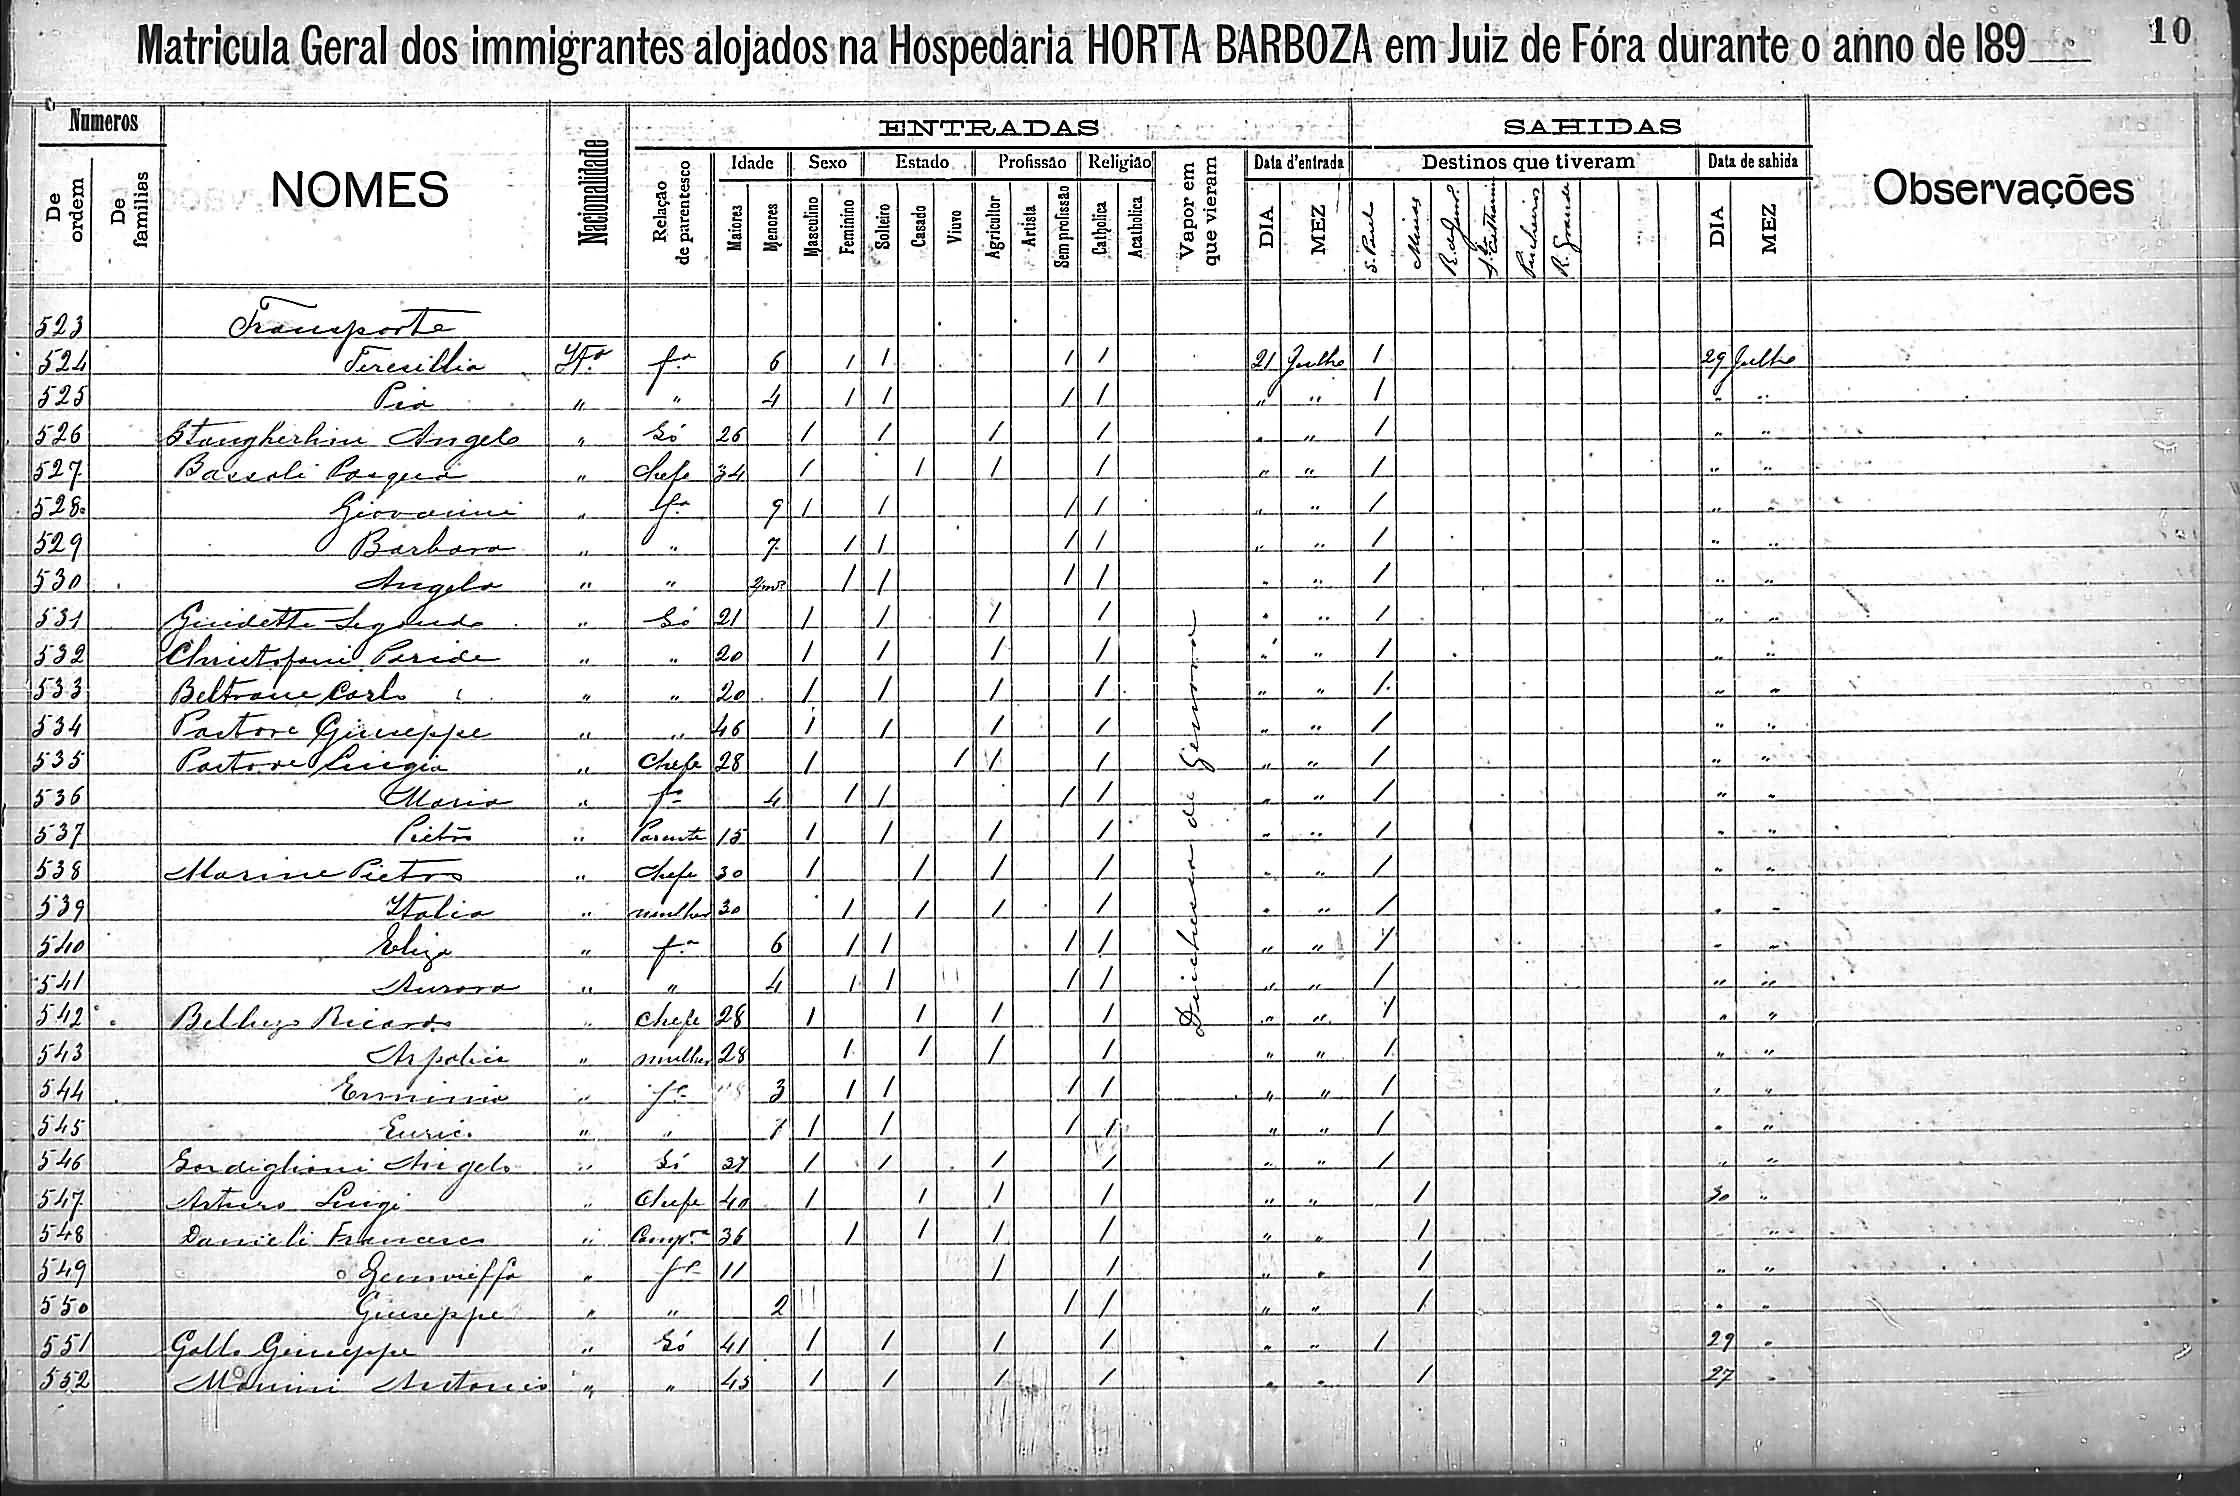 10
Matricula Geral dos immigrantes alojados na Hospedaria HORTA BARBOZA em Juiz de Fóra durante o anno de 189
Numeros
De ordem
De familias
NOMES
Nacionalidade
ENTRADAS
Relação de parentesco
Idade
Maiores
Menores
Sexo
Masculino
Feminino
Estado
Solteiro
Casado
Viuvo
Profissão
Agricultor
Artista
Sem profissão
Religião
Catholica
Acatholica
Vapor em que vieram
Data d'entrada
DIA
MEZ
SAHIDAS
Destinos que tiveram
S. Paulo
Minas
R. de Janº
Sta Catharina
Pinheiros
R. Grande
Data de sahida
DIA
MEZ
Observações
Duichessa di Genova
523 Transporte
524 Teresillia Itª fª 6 1 1 1 1 21 Julho 1 29 Julho
525 Pia " " 4 1 1 1 1 " " 1 " "
526 Stangherlin Angelo " Só 26 1 1 1 1 " " 1 " "
527 Bassoli Pasqua " Chefe 34 1 1 1 1 " " 1 " "
528 Giovanni " fº 9 1 1 1 1 " " 1 " "
529 Barbara " " 7 1 1 1 1 " " 1 " "
530 Angela " " 1 1 1 1 " " 1 " "
531 Guidette Segondo " Só 21 1 1 1 1 " " 1 " "
532 Christofani Paride " " 20 1 1 1 1 " " 1 " "
533 Beltrane Carlo " " 20 1 1 1 1 " " 1 " "
534 Pastore Giuseppe " " 46 1 1 1 1 " " 1 " "
535 Pastore Luigia " Chefe 28 1 1 1 1 " " 1 " "
536 Maria " fª 4 1 1 1 1 " " 1 " "
537 Pietro " Parente 15 1 1 1 1 " " 1 " "
538 Marine Pietro " Chefe 30 1 1 1 1 " " 1 " "
539 Italia " mulher 30 1 1 1 1 " " 1 " "
540 Eliza " fª 6 1 1 1 1 " " 1 " "
541 Aurora " " 4 1 1 1 1 " " 1 " "
542 Ricardo " Chefe 28 1 1 1 1 " " 1 " "
543 " mulher 28 1 1 1 1 " " 1 " "
544 Erminia " fª 3 1 1 1 1 " " 1 " "
545 " " 7 1 1 1 1 " " 1 " "
546 Gordiglioni Angelo " Só 37 1 1 1 1 " " 1 " "
547 Arturo Luigi " Chefe 40 1 1 1 1 " " 1 30 "
548 Danieli Francesca " Compª 36 1 1 1 1 " " 1 "
549 " fª 11 1 1 " " 1 " "
550 Giuseppe " " 2 1 1 " " 1 " "
551 Gallo Giuseppe " Só 41 1 1 1 1 " " 1 29 "
552 Manini Antonio " " 45 1 1 1 1 " " 1 27 "